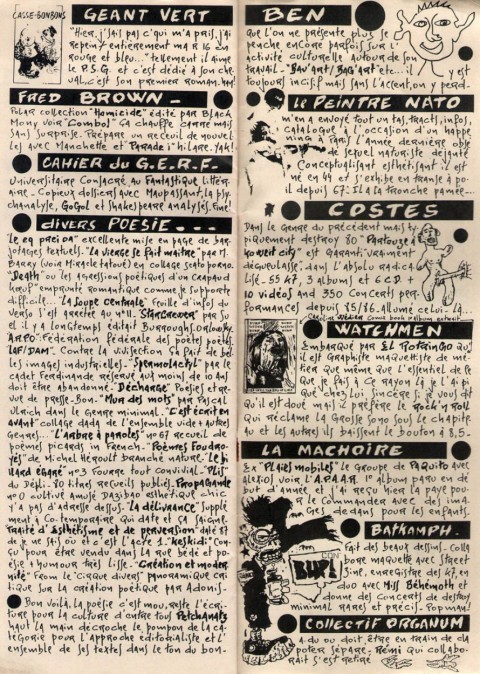 CASSE-BONBONS
GEANT VERT
"Hier, j'sais pas c'qui m'a pris, j'ai
repeint entièrement ma R 16 en
rouge et bleu..." tellement il aime
le P.S.G. et c'est dédié à son che
val... c'est son premier roman.
FRED BROWN
Polar collection "Homicide" édité par Black
Mony voir "Combo". Ca chauffe carré mais
sans surprise. Prépare un receuil de nouvel
les avec Manchette et "Parade" hilare. Yak!
CAHIER du G.E.R.F.
Universitaire consacré au Fantastique littér
aire. Copieux dossiers avec Maupassant, la psy
chanalyse, Gogol et Shakespeare analyses. Finé!
divers POESIE...
excellente mise en page de bar
jotages textuels. "La vierge se fait mettre" par M.
Barry (voir Miracle Tatoué) en collage scato porno.
"Death" ou les agressions poétiques d'un crapaud
emprunte romantique comme le supporte
difficile... "La soupe centrale" feuille d'infos du
verso s'est arretée au n°11. "Starscrewer" par su
el il y a longtemps éditait Burroughs, Orlowsky,
"ARPO" Fédération fédérale des poètes poètes.
"LAF/DAM". Contre la vivisection ça fait de bel
les images industrielles. "Spermolactyl" par le
cadet Ferdinande réservé aux moins de 10 ans
doit être abandonné. "Décharge" Poésies et re
vue de presse. Bon. "Mur des mots" par Pascal
Ulrich dans le genre minimal. "C'est écrit en
avant" collage dada de l'ensemble vide + autres
genres... "L'arbre à paroles" n°67 recueil de
poèmes picards in French. "Poèmes Foudro
yés" de Michel Héroult branche nature. "Le bi
llard égaré" n°3 Fourre tout convivial. "Plis"
du Dépli. 80 titres recueils publiés. "Propagande
n°0 cultivé amusé Dazibao esthétique chic
j'a pas d'adresse dessus. "La délivrance" supplé
ment à Co-temporaire qui date et sa saigne.
"Traité d'Esthétisme et de perversion" daté 87
je ne sais où c'est l'acte 1. "Keskidi" con
çu pour être vendu dans la rue bédé et po
ésie + humour très lisse. "Création et moder
nité" From le "Cirque divers" panoramique cri
tique sur la création poétique par Adonis.
Bon voilà, la poésie c'est mou, reste l'écri
ture pour la culture d'entre tout Petchanats
haut la main décroche le pompon de la ca
tégorie pour l'approche éditorialiste et l'
ensemble de ses textes dans le ton du bon.
BEN
Que l'on ne présente plus se
penche encore parfois sur l'
activité culturelle autour de son
travail. "Bav'art/Bag'art" etc... il y est
toujours incisif mais sans l'accent, on y perd.
Le PEINTRE NATO
m'en a envoyé tout un tas, tracts, infos,
catalogue à l'occasion d'un happe
ning à Paris l'année dernière obsé
dé sexuel naturiste déjanté.
Conceptualisant esthétisant il est
né en 44 et s'exhibe en transe à po
il depuis 67: Il a la tronche pamée...
COSTES
Dans le genre du précédent mais ty
piquement destroy 80 "Partouze à
Koweït city" est garanti vraiment
dégueulasse, dans l'absolu radica
lisé. 55 k7, 3 albums et 6 C.D. +
10 vidéos and 350 concerts per
formances, depuis 85/86. Allumé celui-là...
WATCHMEN
Embarqué par El Rotringo qui
est graphiste maquettiste de mé
tier que même que l'essentiel de ce
que je fais à ce rayon là je l'ai pi
qué chez lui, sincère si, je vous dit
qu'il est doué mais il préfère le Rock'n roll
qui réclame la grosse sono sous le chapite
au et les autres ils baissent le bouton à 8,5.
LA MACHOIRE
Ex "Plaies mobiles" le groupe de Paquito avec
Alexios voir L'A.P.A.A.R. 1° album paru en dé
but d'année, et j'ai reçu hier la paye pou
r le commander avec de j ima
ges dedans pour les enfants.
BATKAMPH.
BUP!
Fait des beaux dessins. Colla
bore maquette avec Street
Sine, enregistre des k7 en
duo avec Miss Béhémoth et
donne des concerts de destroy
minimal rares et précis. Pop man!
COLLECTIF ORGANUM
a du ou doit être en train de ca
poter séparé. Rémi qui collabo
rait s'est retiré